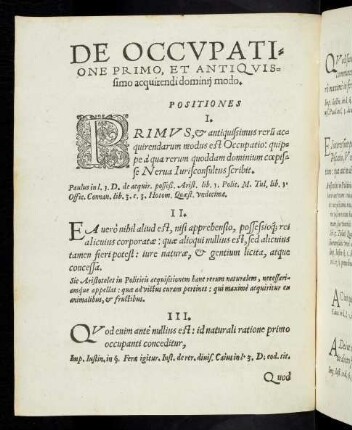 DE OCCVPATI-
ONE PRIMO, ET ANTIQVIS-
simo acquirendi dominij modo.
POSITIONES
I.
PRIMVS, & antiquissimus rerū ac-
quirendarum modus est Occupatio: quip-
pe à qua rerum quoddam dominium cœpis-
se Nerva Iurisconsultus scribit.
Paulus in l. 1. D. de acquir. possess. Arist. lib. 1. Polit. M. Tul. lib. 1.
Offic. Connan. lib. 3. c. 3. Hotom. Quæst.
II.
EA verò nihil aliud est, nisi apprehensio, possessioq; rei
alicuius corporatæ: quæ alioqui nullius est, sed alicuius
tamen fieri potest: iure naturæ, & gentium licita, atque
concessa.
Sic Aristoteles in Politicis acquisitionem hanc rerum naturalem, necessari-
amque appellat: quæ ad victus curam pertinet: qui maximè acquiritur ex
animalibus, & fructibus.
III.
QVod enim antè nullius est: id naturali ratione primo
occupanti conceditur,
Imp. Iustin. in §. Feræ igitur. Inst. de rer. divis. Caius in l. 3. D. eod. tit.
Quod